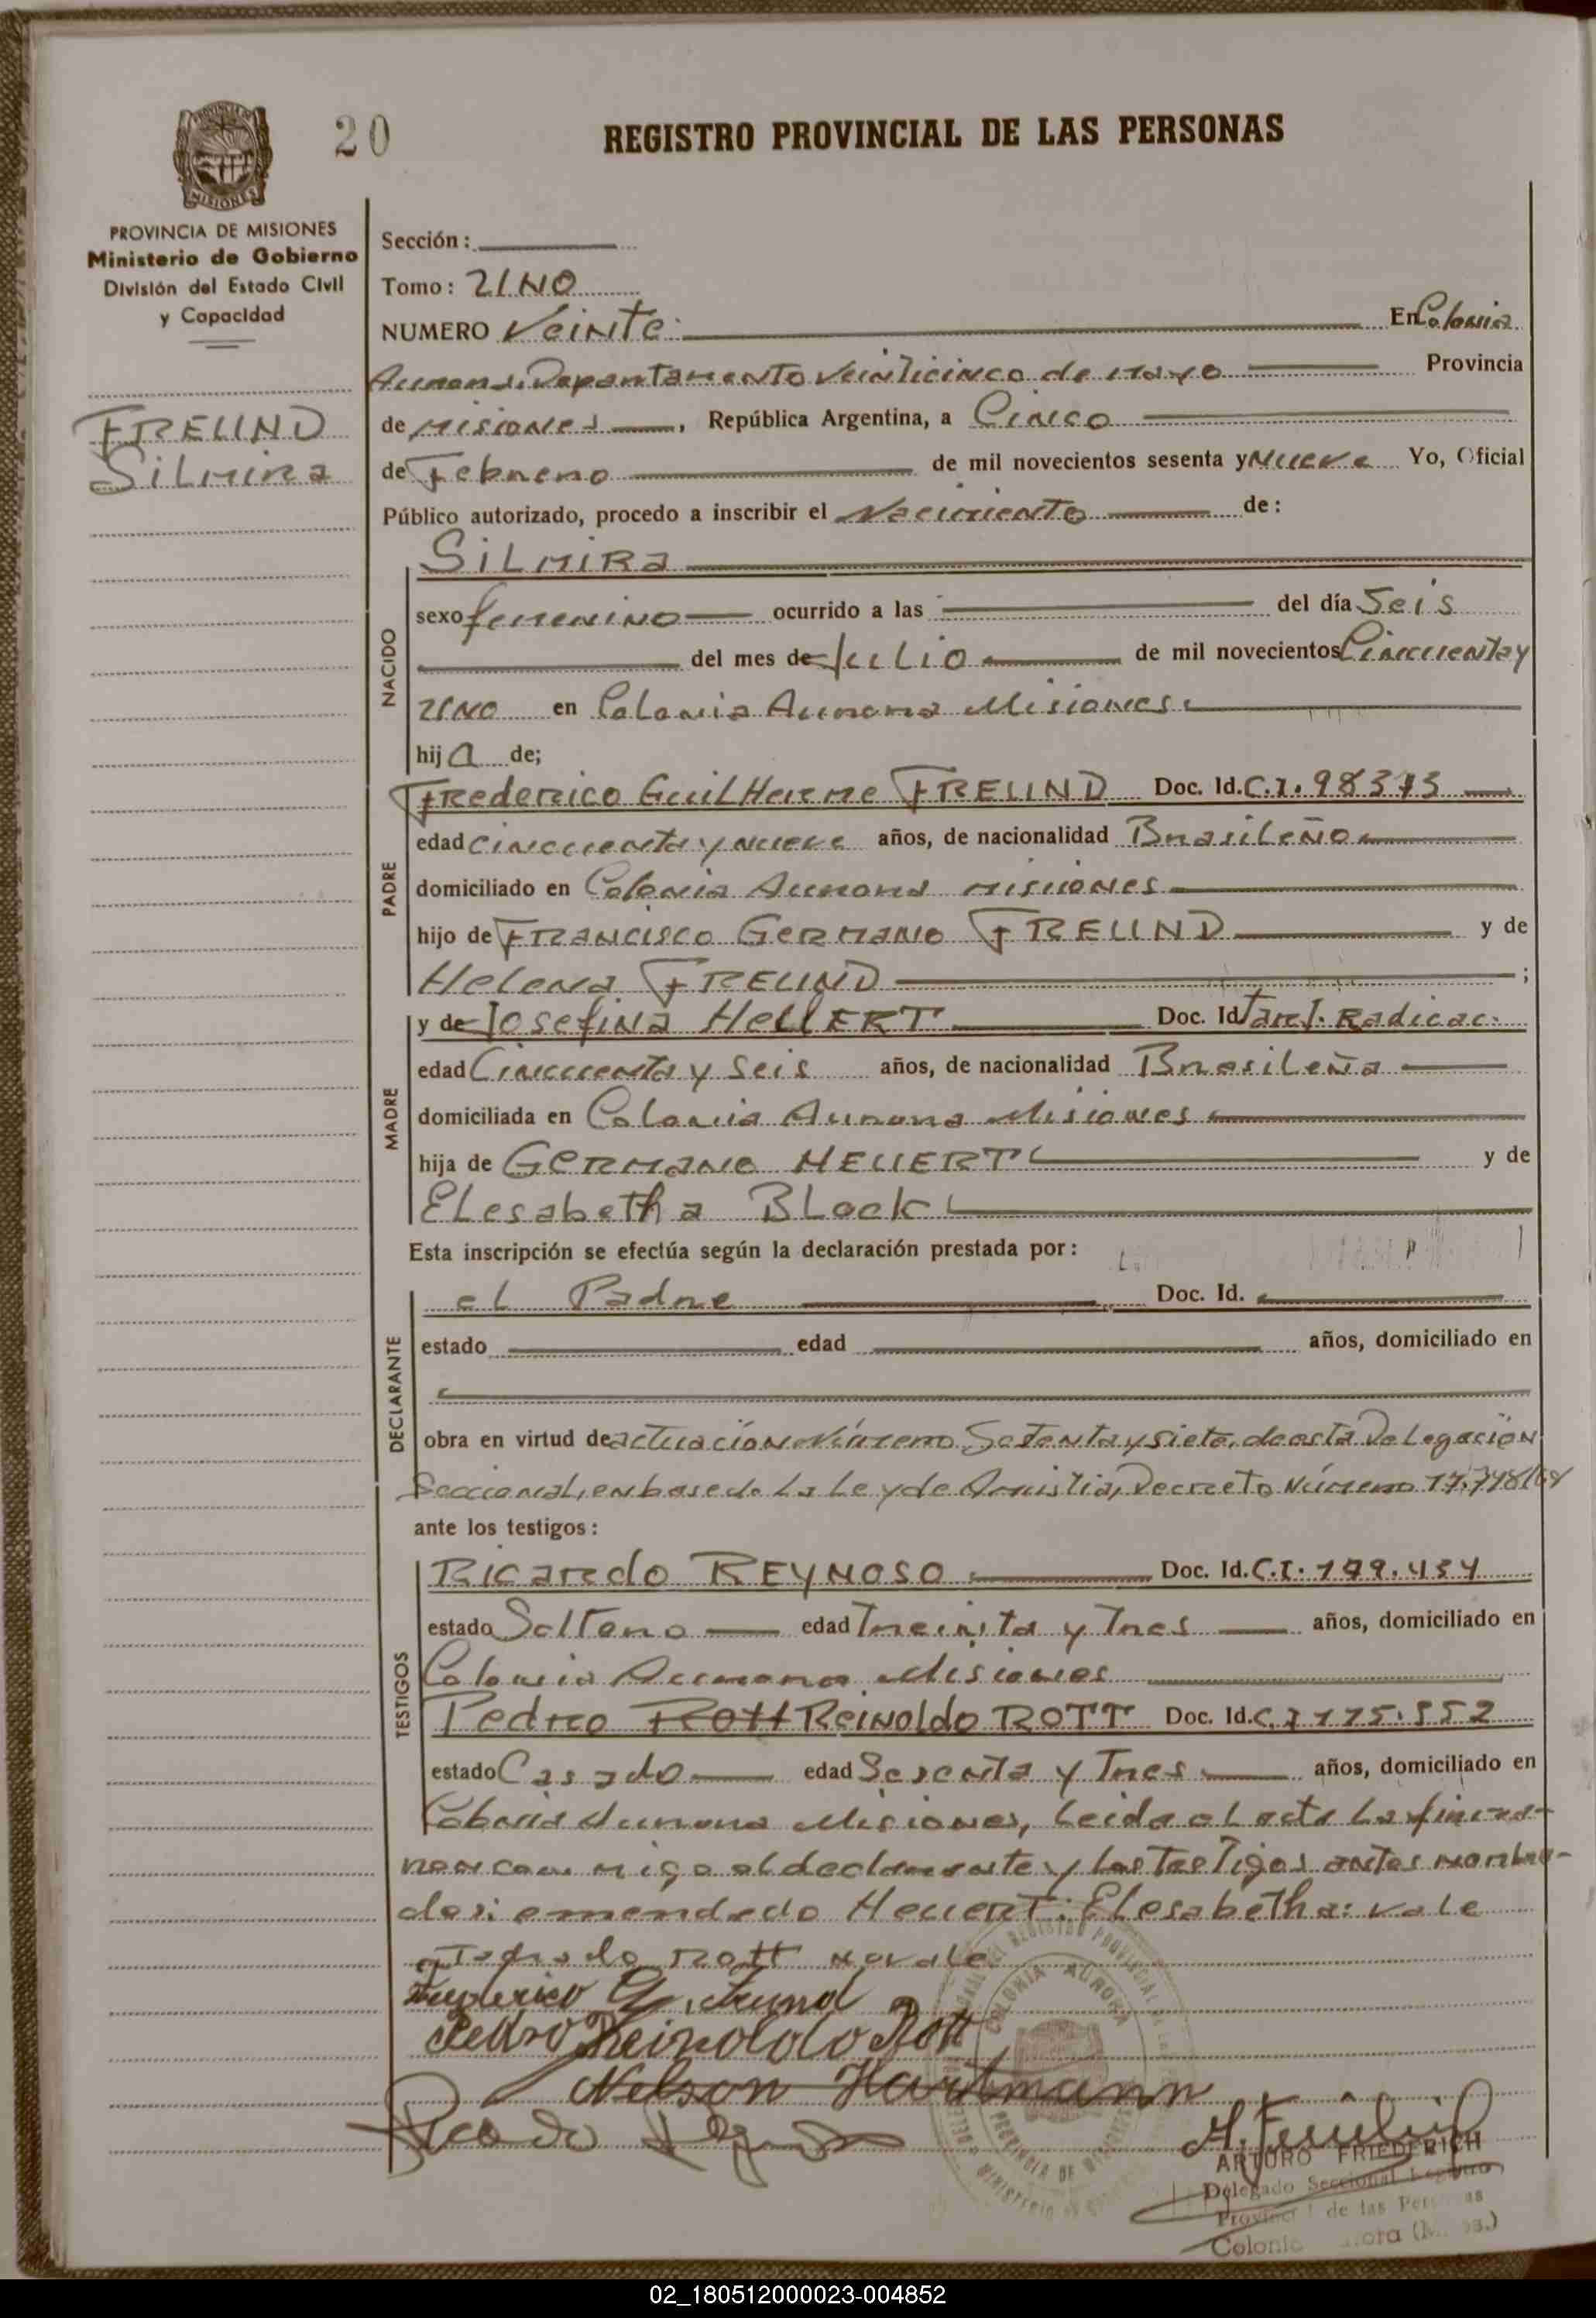 20
REGISTRO PROVINCIAL DE LAS PERSONAS
PROVINCIA DE MISIONES
Ministerio de Gobierno
División del Estado Civil
y Capacidad
FREUND
Silmira
Sección:
Tomo: UNO
NUMERO Veinte. En Colonia
Aurora, Departamento Veinticinco de Mayo Provincia
de Misiones, República Argentina, a Cinco
de Febrero de mil novecientos sesenta y Nueve Yo, Oficial
Público autorizado, procedo a inscribir el Nacimiento de:
NACIDO
SILMIRA
sexo femenino ocurrido a las del día Seis
del mes de Julio de mil novecientos Cincuenta y
uno en Colonia Aurora Misiones.
hija de;
PADRE
Frederico Guilherme FREUND Doc. Id. C.I. 98373
edad cincuenta y nueve años, de nacionalidad Brasileño
domiciliado en Colonia Aurora Misiones
hijo de Francisco Germano FREUND y de
Helena FREUND ;
MADRE
y de Josefina HeuERT Doc. Id Tarj. Radicac.
edad Cincuenta y Seis años, de nacionalidad Brasileña
domiciliada en Colonia Aurora Misiones
hija de Germano HEUERT y de
Elesabetha Block
Esta inscripción se efectúa según la declaración prestada por:
DECLARANTE
el Padre Doc. Id.
estado edad años, domiciliado en
obra en virtud de actuación Número Setenta y siete, de esta Delegación
Seccional, en base de La Ley de Amistia, Decreto Número 17.798/68
ante los testigos:
TESTIGOS
Ricardo REYNOSO Doc. Id. C.I. 199.434
estado Soltero edad Treinta y Tres años, domiciliado en
Colonia Aurora Misiones
Pedro Rott Reinoldo ROTT Doc. Id. C.I 175.552
estado Casado edad Sesenta y Tres años, domiciliado en
Colonia Aurora Misiones, Leida el acta La firma-
ron con migo el declarante y los Testigos antes nombra-
dos: emendado Heuert: Elesabetha: vale
Tachado Rott no vale
Frederico G. Freund
Pedro Reinoldo Rott
Nelson Hartmann
Ricardo
COLONIA AURORA
PROVINCIA DE MISIONES
ARTURO FRIEDERICH
Delegado Seccional Registro
Provincial de las Personas
Colonia
02_180512000023-004852